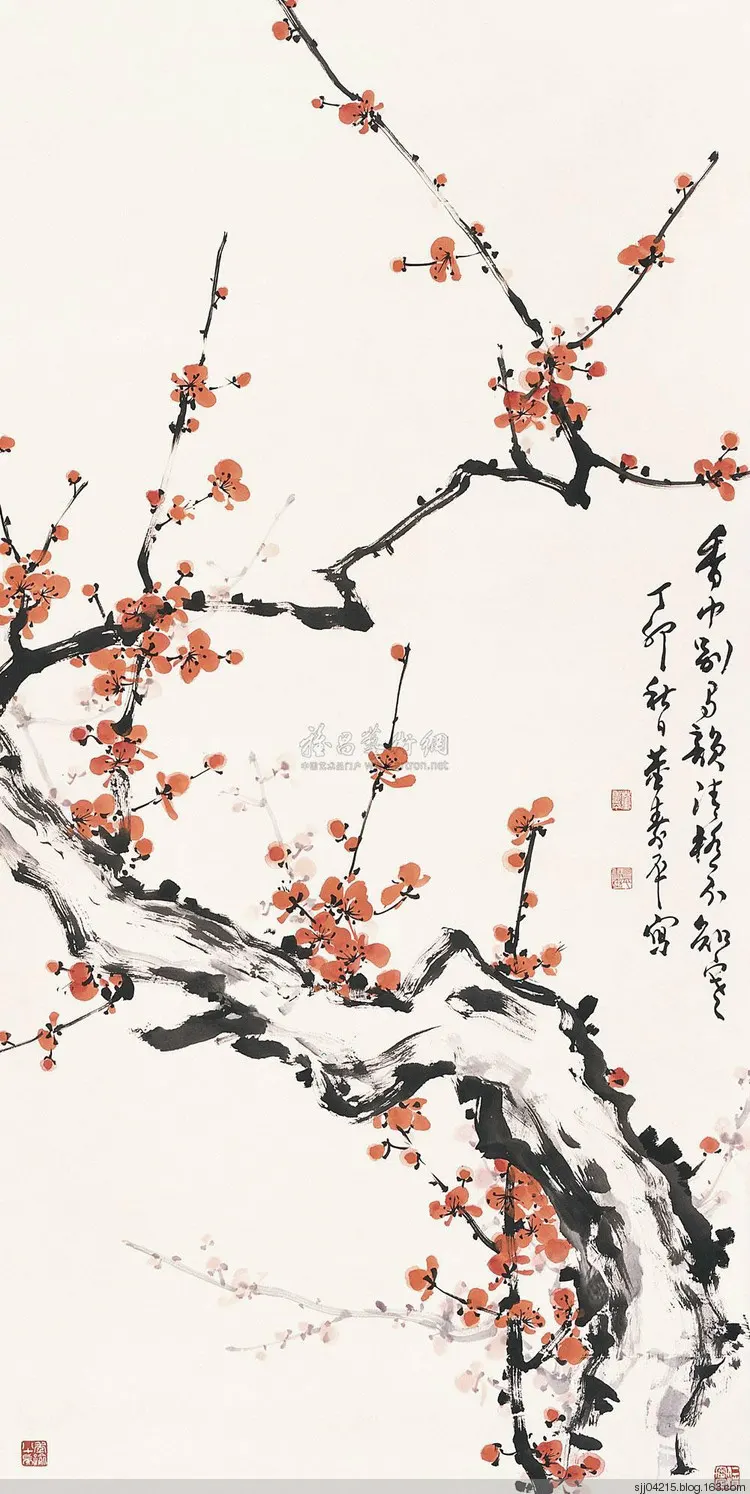 香中别有韵清极不知寒
丁卯秋日董寿平写
雅昌艺术網
中国艺术品门户 www.artron.net
sjj04215.blog.163.com